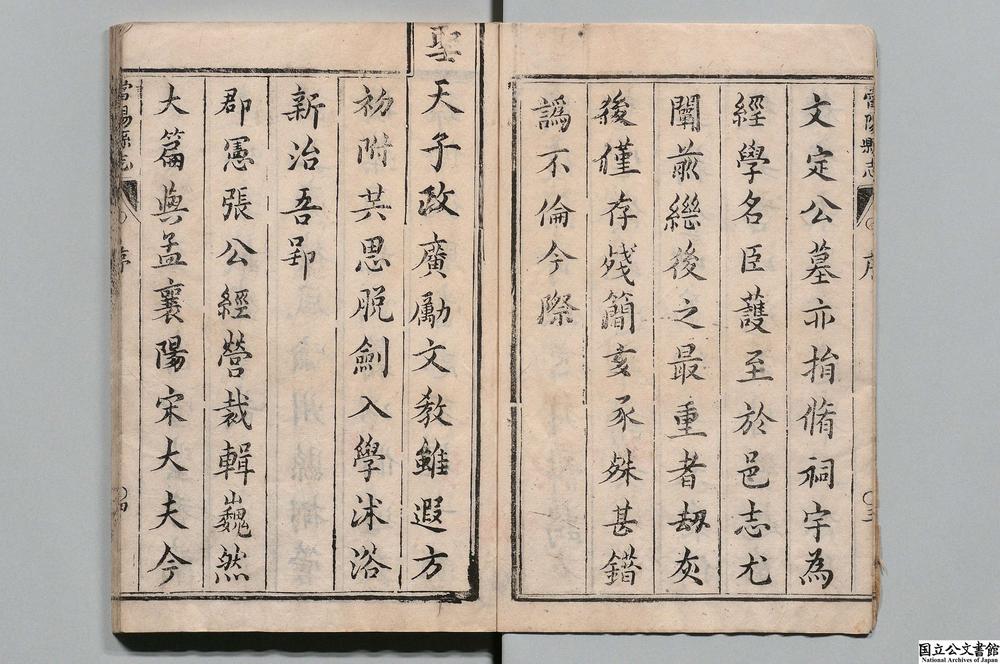 當陽縣志
序
三
文定公墓亦捐脩祠宇為
經學名臣護至於邑志尤
闡前繼後之最重者刼灰
後僅存殘簡亥豕殊甚錯
譌不倫今際
聖天子政廣勵文教雖遐方
初附共思脫劍入學沭浴
新治吾郢
郡憲張公經營裁輯巍然
大篇與孟襄陽宋大夫今
當陽縣志
序
四
国立公文書館
National Archives of Japan